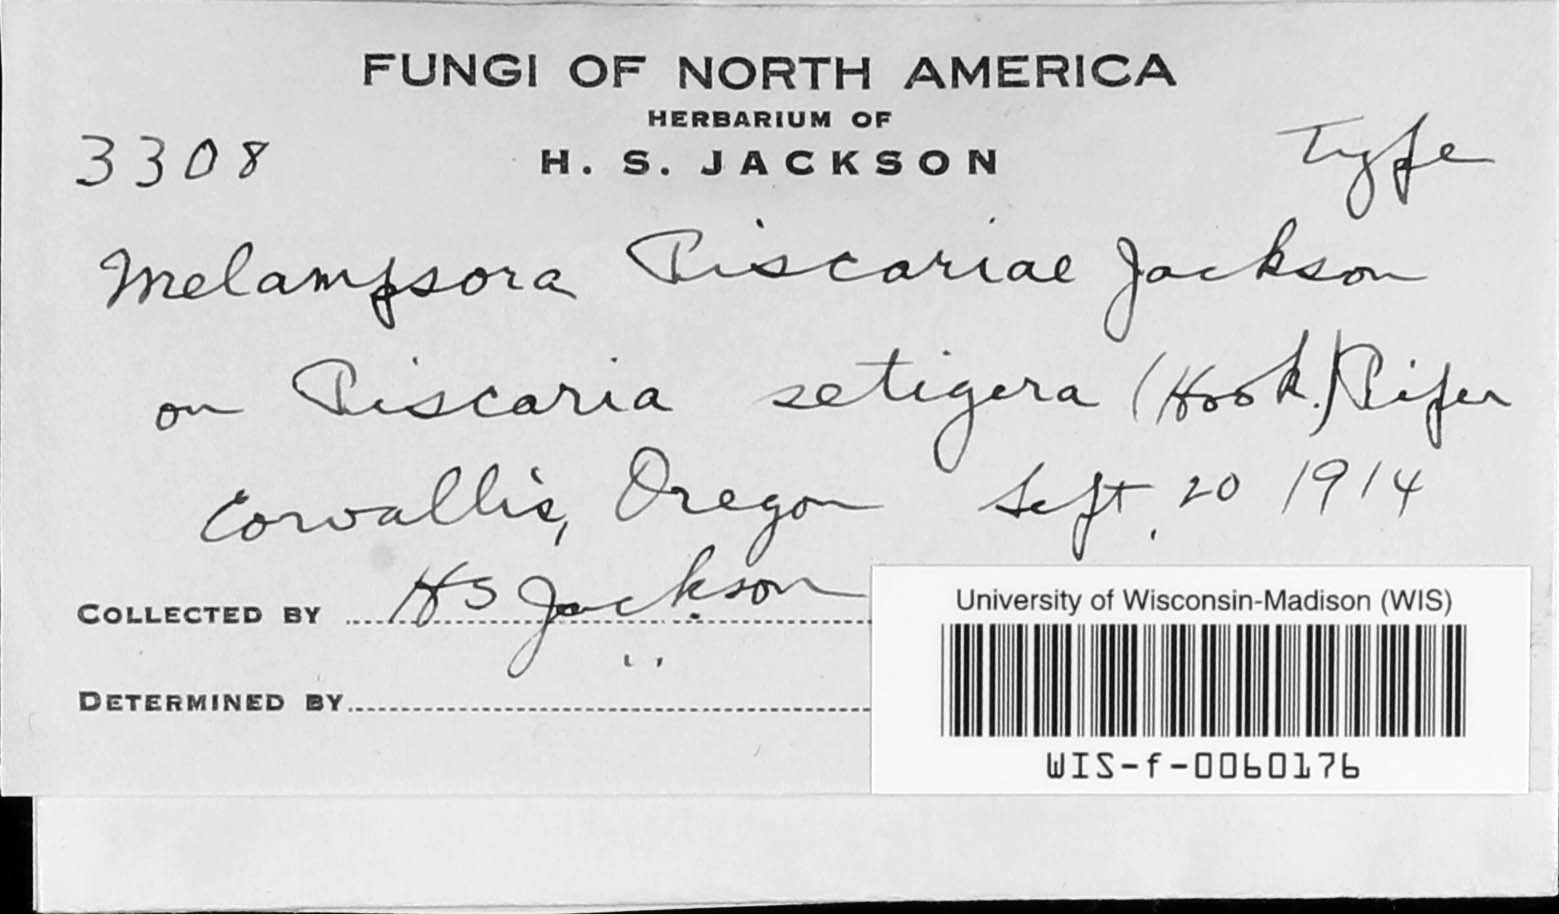 FUNGI OF NORTH AMERICA
HERBARIUM OF
3308 H. S. JACKSON Type
Melampsora Piscariae Jackson
on Piscaria setigera (Hook.) Piper
Corvallis, Oregon Sept. 20 1914
COLLECTED BY HS Jackson
" 
DETERMINED BY
University of Wisconsin-Madison (WIS)
WIS-f-0060176